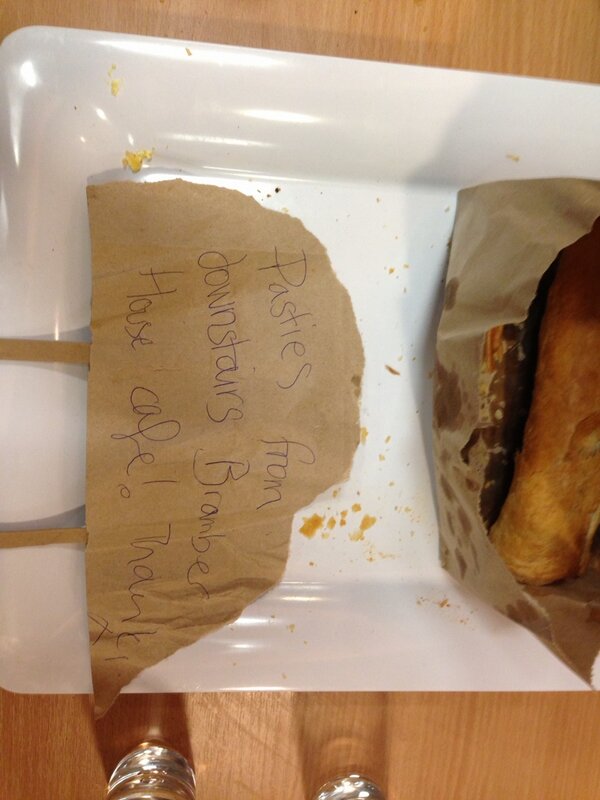 Pasties from
downstairs Bramber
House cafe! Thanks!